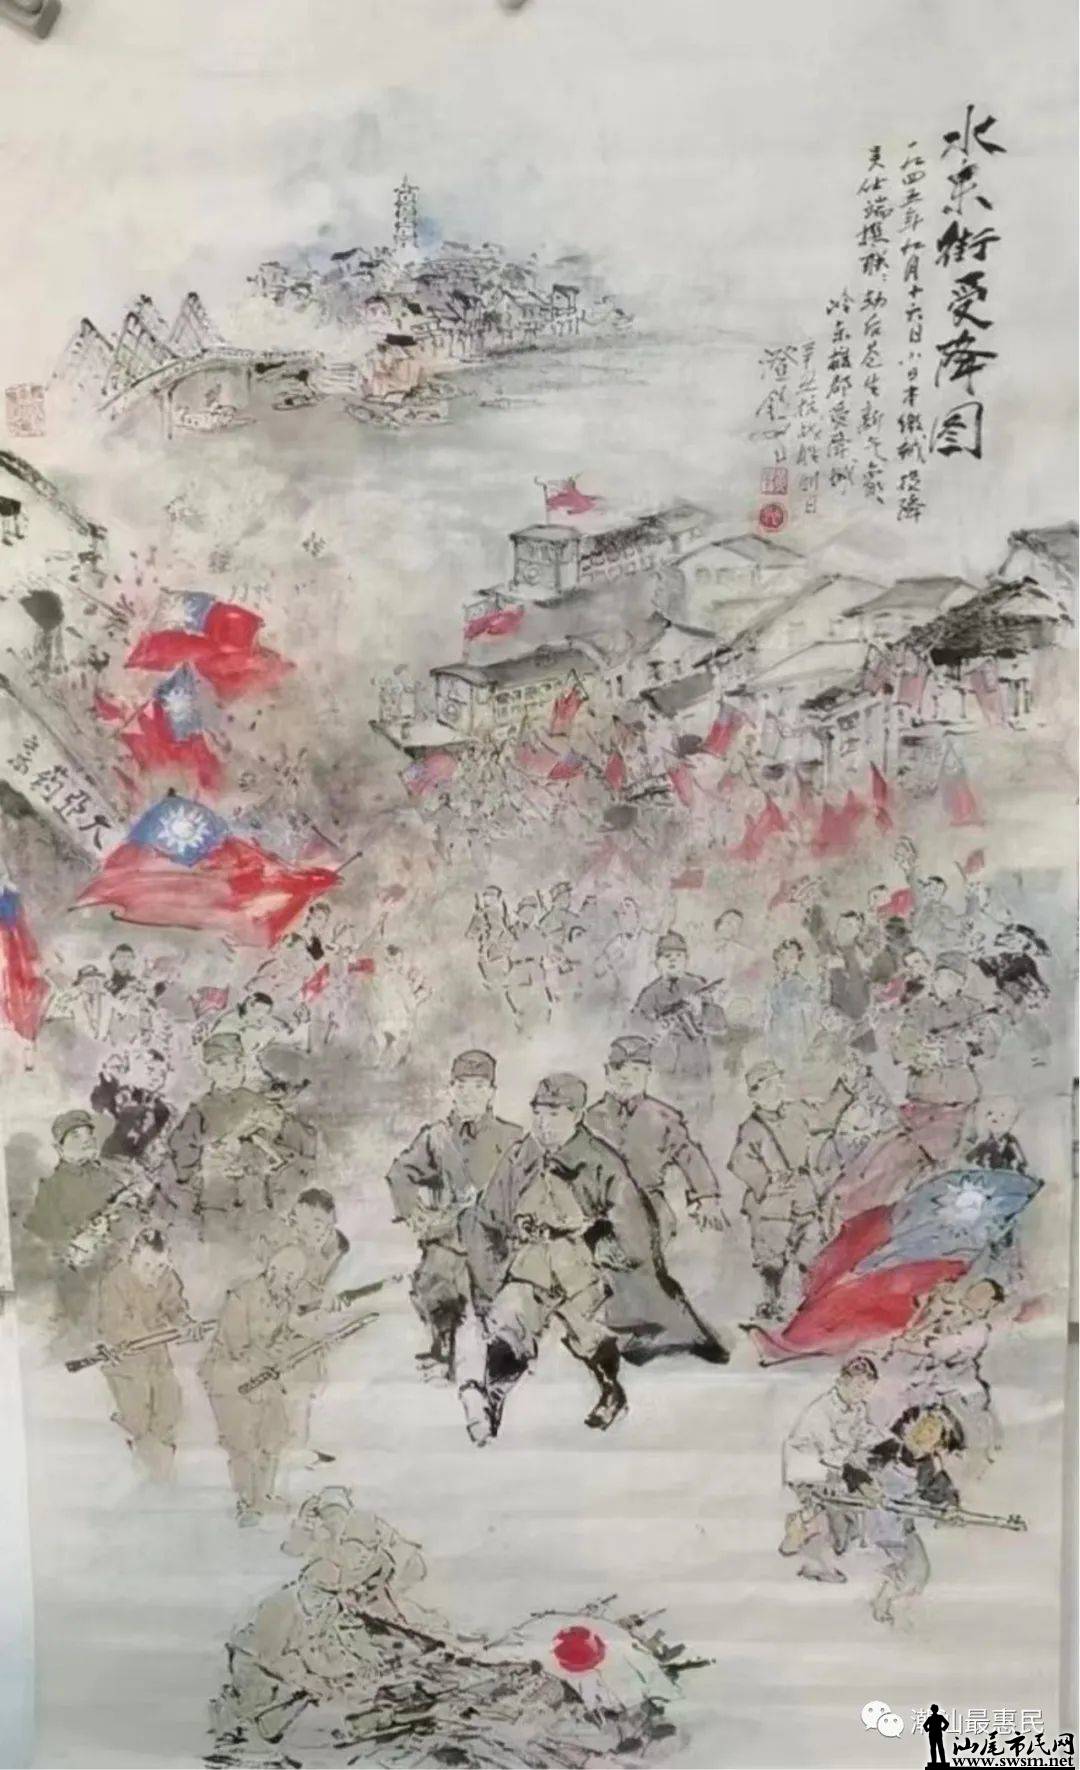 水东街受降图
一九四五年九月十六日八日本缴械投降
吴仕端撰联：劫后苍生新气象
岭东雄郡受降城
辛丑抗战胜利日
大亚药
潮汕最惠民
汕尾市民网
www.swsm.net